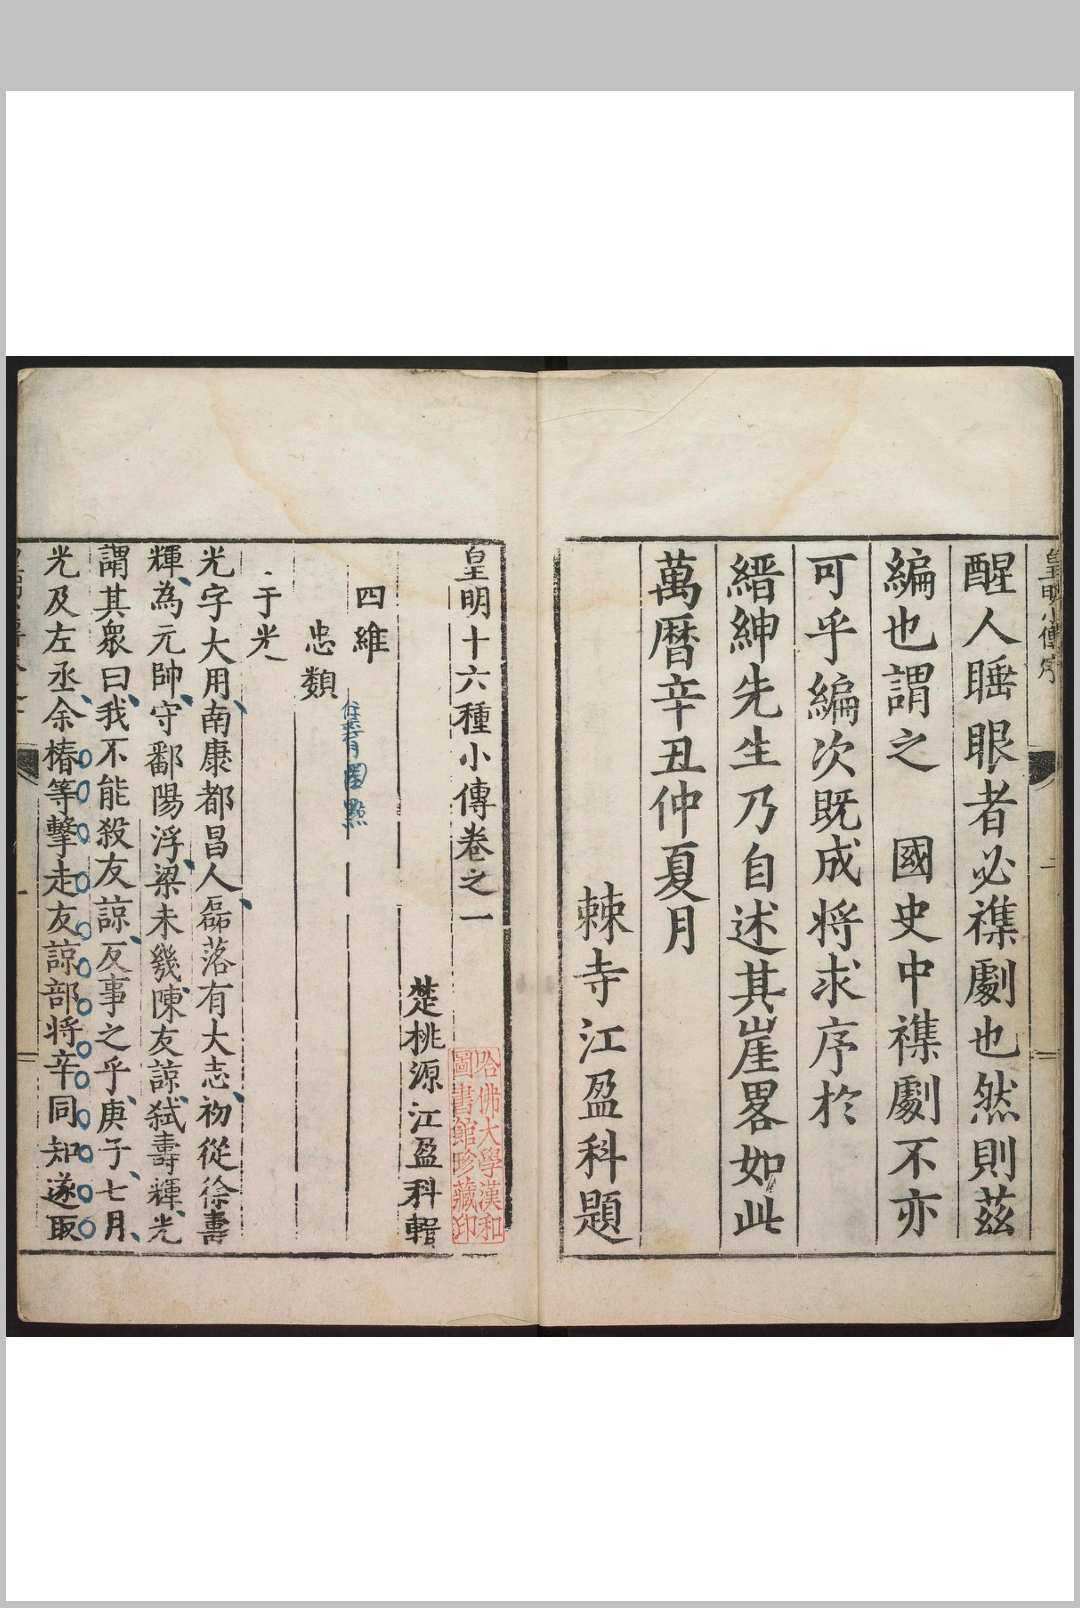 皇明小傳序
二
醒人睡眼者必襍劇也然則茲
編也謂之　國史中襍劇不亦
可乎編次既成将求序於
縉紳先生乃自述其崖畧如此
萬曆辛丑仲夏月
棘寺江盈科題
皇明十六種小傳卷之一
哈佛大學漢和
圖書館珍藏印
楚桃源江盈科輯
四維
忠類
于光
光字大用南康都昌人磊落有大志初從徐壽
輝為元帥守鄱陽浮梁未幾陳友諒弑壽輝光
謂其衆曰我不能殺友諒反事之乎庚子七月
光及左丞余椿等擊走友諒部将辛同知遂取
一